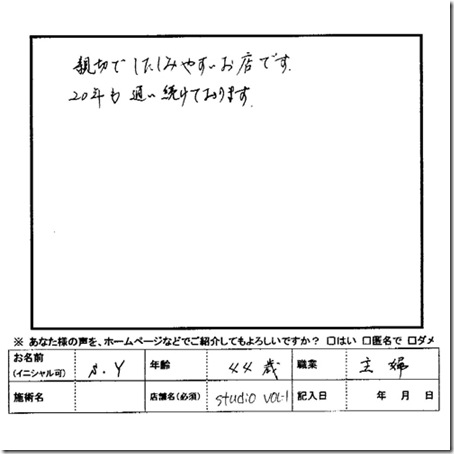 親切でしたしみやすいお店です.
20年も通い続けております.
※ あなた様の声を、ホームページなどでご紹介してもよろしいですか? □はい □匿名で □ダメ
お名前 (イニシャル可) S.Y 年齢 44歳 職業 主婦
施術名 店舗名(必須) studio VOL-1 記入日 年 月 日